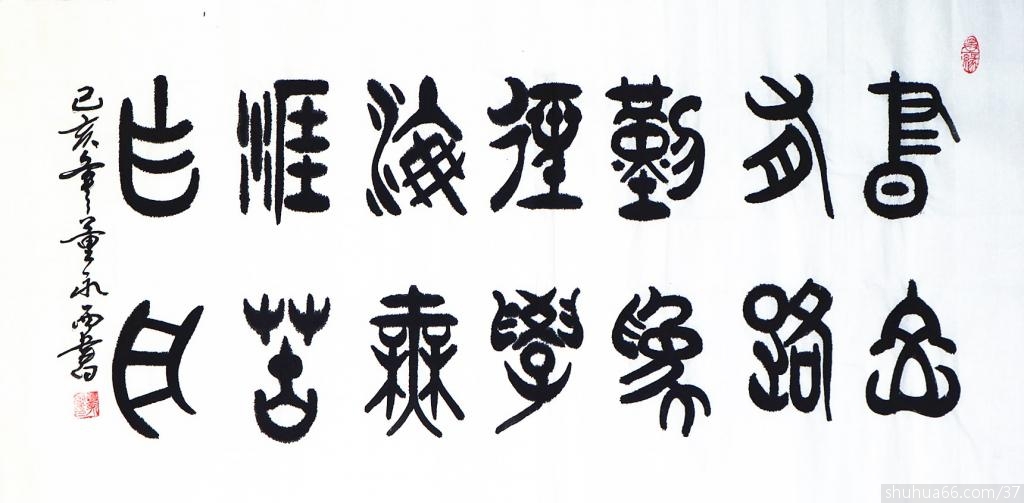 書岳
有路
勤爲
徑學
海無
涯苦
乍舟
己亥年董永書
shuhua66.com/37